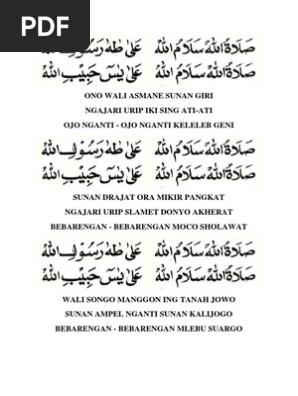 PDF
صَلَاةُ اللهْ سَلَامُ اللهْ عَلَى طٰهَ رَسُوْلِ اللهْ
صَلَاةُ اللهْ سَلَامُ اللهْ عَلَى يٰسٓ حَبِيْبِ اللهْ
ONO WALI ASMANE SUNAN GIRI
NGAJARI URIP IKI SING ATI-ATI
OJO NGANTI - OJO NGANTI KELELEB GENI
صَلَاةُ اللهْ سَلَامُ اللهْ عَلَى طٰهَ رَسُوْلِ اللهْ
صَلَاةُ اللهْ سَلَامُ اللهْ عَلَى يٰسٓ حَبِيْبِ اللهْ
SUNAN DRAJAT ORA MIKIR PANGKAT
NGAJARI URIP SLAMET DONYO AKHERAT
BEBARENGAN - BEBARENGAN MOCO SHOLAWAT
صَلَاةُ اللهْ سَلَامُ اللهْ عَلَى طٰهَ رَسُوْلِ اللهْ
صَلَاةُ اللهْ سَلَامُ اللهْ عَلَى يٰسٓ حَبِيْبِ اللهْ
WALI SONGO MANGGON ING TANAH JOWO
SUNAN AMPEL NGANTI SUNAN KALIJOGO
BEBARENGAN - BEBARENGAN MLEBU SUARGO